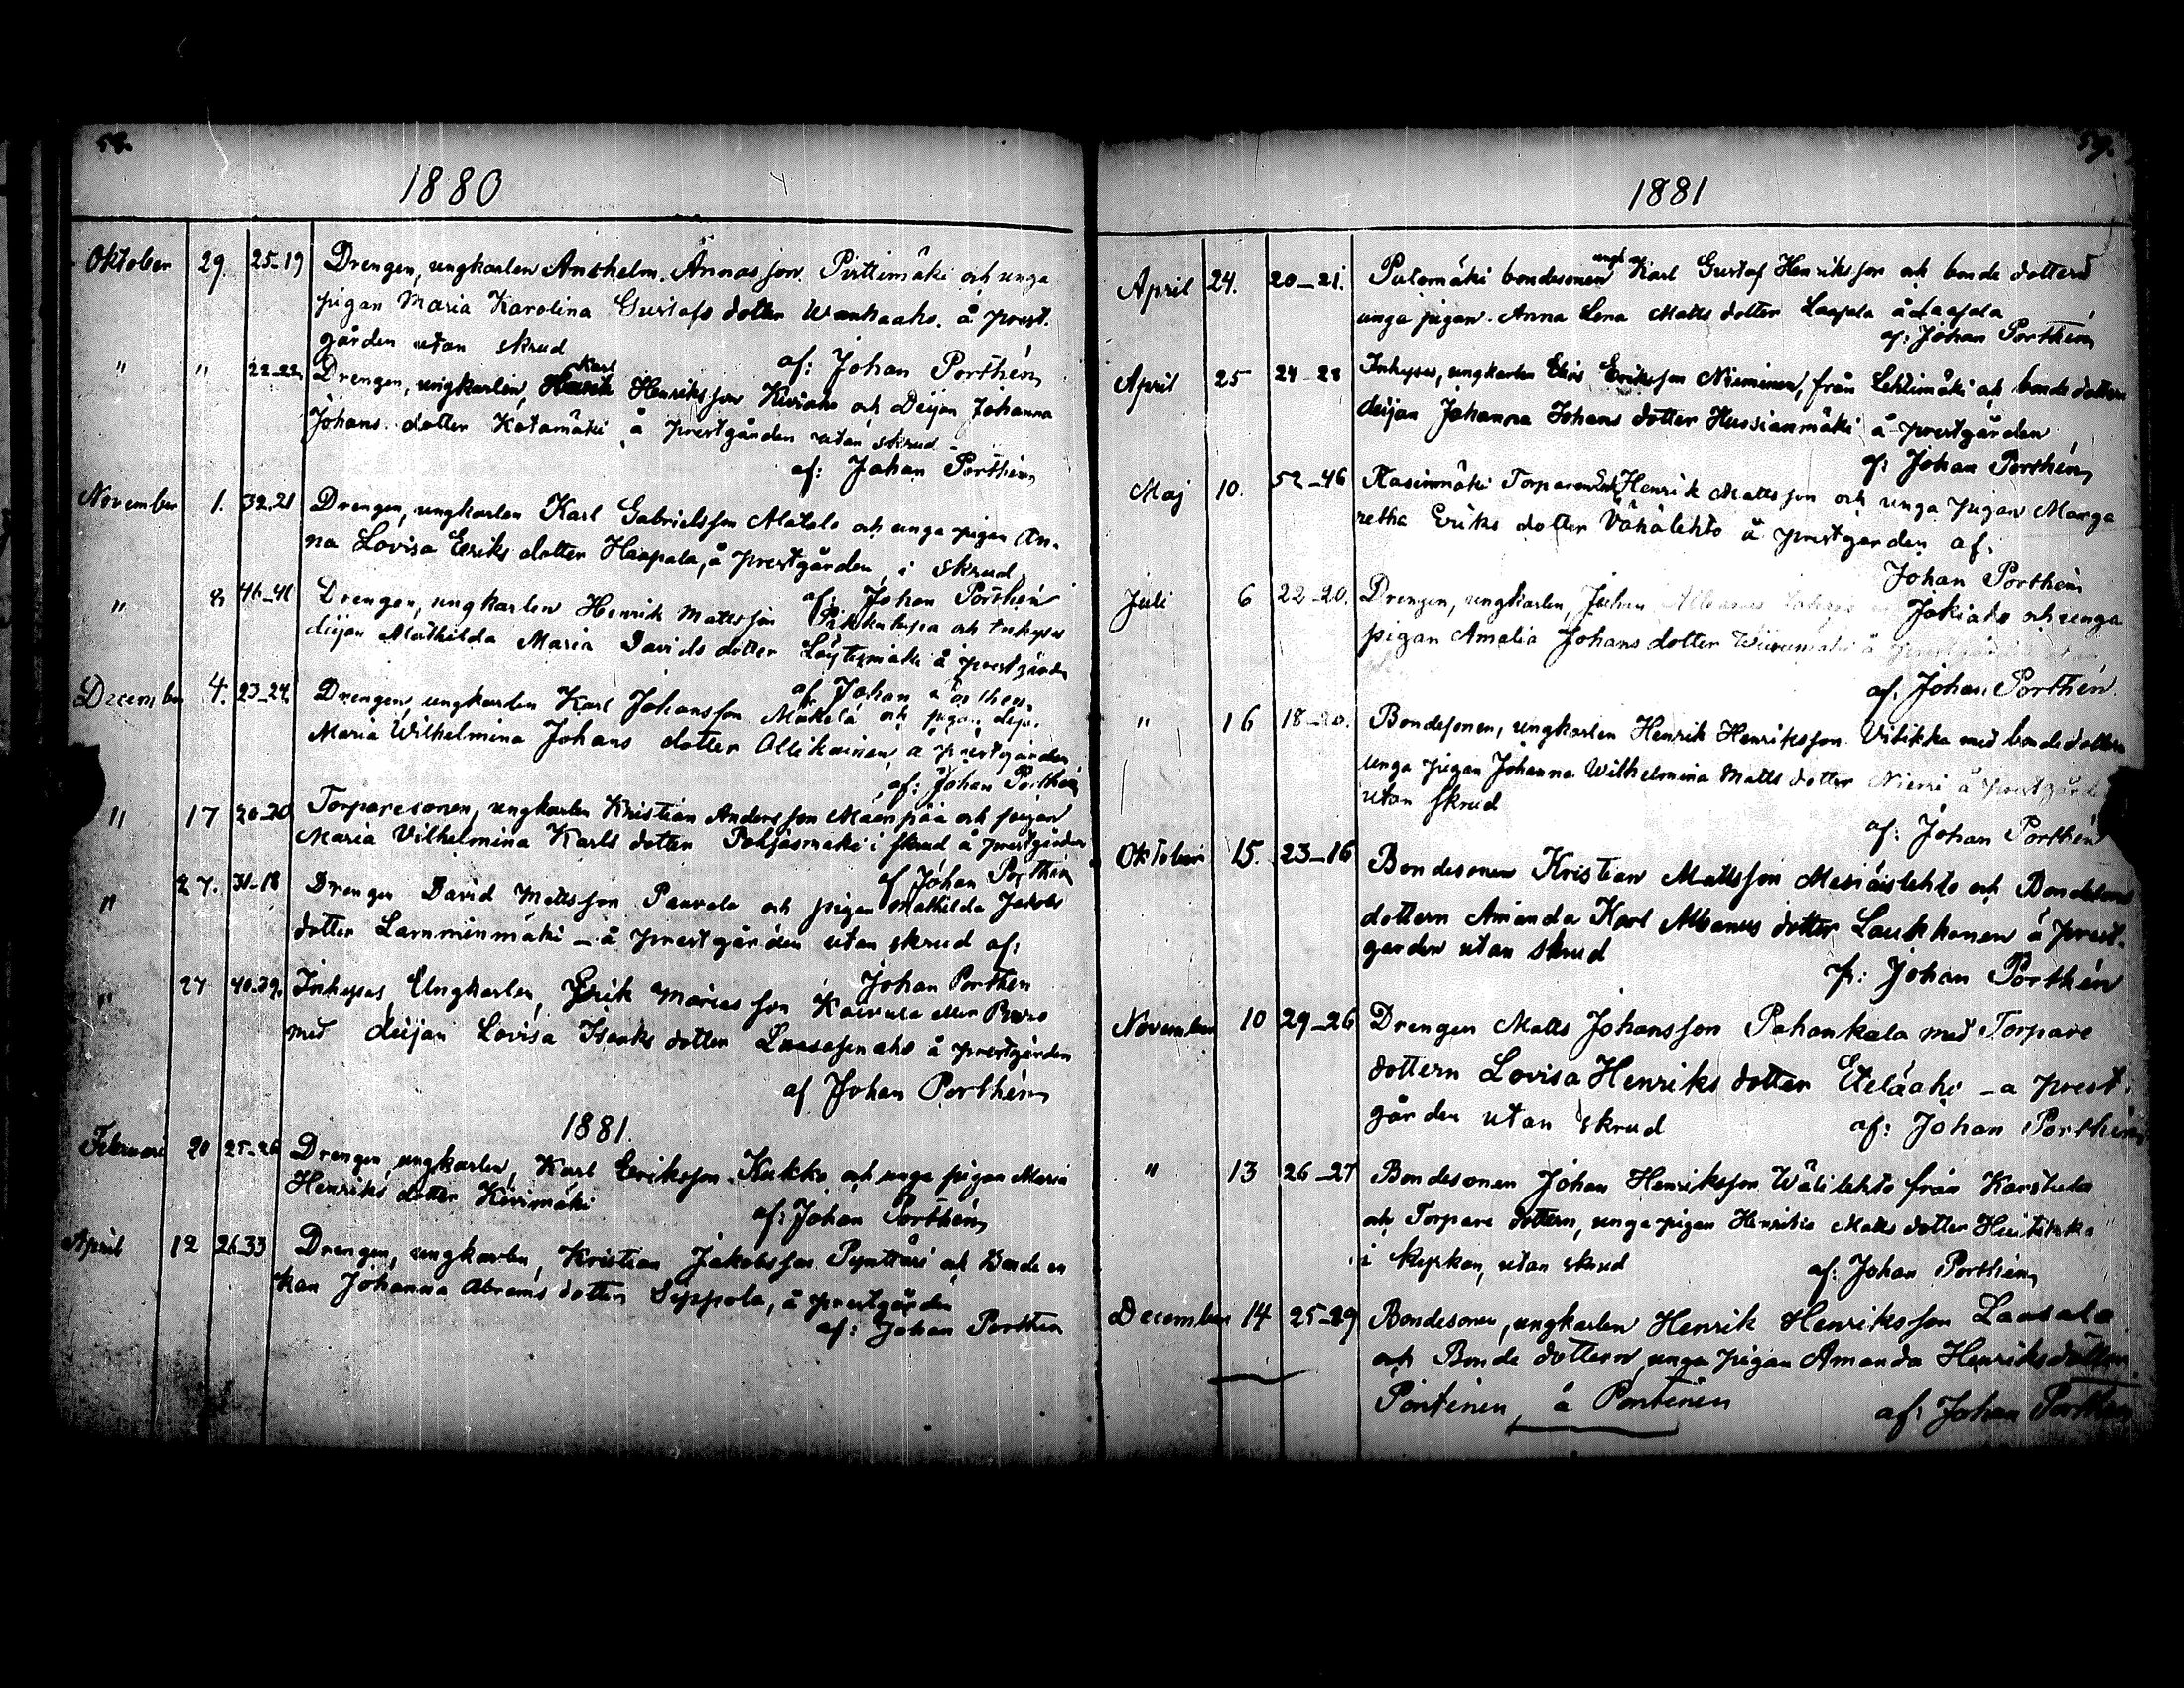 58.
1880
Oktober 29. 25-19 Drengen, ungkarlen Anshelm Annasson Pirttimäki och unga
pigan Maria Karolina Gustafs dotter Wanhaaho. å prest.
gården utan skrud
af: Johan Porthén
" " 22-22 Drengen, ungkarlen, Karl Henriksson Kiviaho och Deijan Johanna
Johans dotter Kotamäki å prestgården utan skrud -
af: Johan Porthén
November 1. 32.21 Drengen, ungkarlen Karl Gabrielsson Alatalo och unga pigan An-
na Lovisa Eriks dotter Haapala, å prestgården i skrud
af: Johan Porthén
" 8 46-41 Drengen, ungkarlen Henrik Mattsson och Inhyses
deijan Mathilda Maria Davids dotter å prestgården
af Johan Porthen
December 4. 23-24. Drengen, ungkarlen Karl Johansson Mäkelä och pigan deja
Maria Wilhelmina Johans dotter Ollikainen, å prestgården
af: Johan Porthén
" 17 20-20 Torparesonen, ungkarlen Kristian Andersson Mäenpää och pigan
Maria Vilhelmina Karls dotter Pohjasmäki i skrud å prestgården
af Johan Porthén
" 27. 31-18 Drengen David Mattsson Paavola och pigan Mathilda Jakobs
dotter Lamminmäki - å prestgården utan skrud af:
Johan Porthen
" 27 40.39. Inhyses, Ungkarlen, Erik Mariasson Koivula eller Puro
med deijan Lovisa Isaaks dotter å prestgården
af Johan Porthén
1881.
Februari 20 25-26 Drengen, ungkarlen, Karl Eriksson Kukko och unga pigan Maria
Henriks dotter Kivimäki
af: Johan Porthén
April 12 26-33 Drengen, ungkarlen, Kristian Jakobsson Pynttäri och Bonde en
kan Johanna Abrams dotter Seppola, å prestgården
af: Johan Porthen
59.
1881
April 24. 20-21. Palomäki bondesonen ungk Karl Gustaf Henriksson och bonde dottern
unga pigan Anna Lena Matts dotter Laasala å Laasala
af: Johan Porthén
April 25 24-28 Inhyses, ungkarlen Elias Eriksson Nieminen, från Lehtimäki och bonde dottern
deijan Johanna Johans dotter Hussianmäki å prestgården
af: Johan Porthén
Maj 10. 52-46 Kasinmäki Torparen Enk Henrik Mattsson och unga pigan Marga
retha Eriks dotter Vähälehto å prestgården af:
Johan Porthén
Juli 6 22-20. Drengen, ungkarlen, Johan Jokiaho och unga
pigan Amalia Johans dotter å prestgården utan
af: Johan Porthén.
" 16 18-20. Bondesonen, ungkarlen Henrik Henriksson Vitikka med bondedottern
unga pigan Johanna Wilhelmina Matts dotter Niemi å prestgården
utan skrud
af: Johan Porthén
Oktober 15. 23-16 Bondesonen Kristian Mattsson Mesiäislehto och Bonde
dottern Amanda Karl Albanus dotter Laukkonen å prest-
garden utan skrud
af: Johan Porthén
November 10 29-26 Drengen Matts Johansson Pahankala med Torpare
dottern Lovisa Henriks dotter Eteläaho - å prest.
gården utan skrud
af: Johan Porthén
" 13 26-27 Bondesonen Johan Henriksson Wälilehto från Karstula
och Torpare dottern, unga pigan Henrika Matts dotter
i kyrkan, utan skrud
af: Johan Porthén
December 14 25-29 Bondesonen, ungkarlen Henrik Henriksson Laasala
och Bonde dottern unga pigan Amanda Henriksdotter
Pöntinen, å Pöntinen
af: Johan Porthén